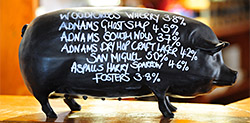 WOODFORDES WHERRY 3.8%
ADNAMS GHOST SHIP 4.5%
ADNAMS SOUTHWOLD 3.7%
ADNAMS DRY HOP CRAFT LAGER 4.2%
SAN MIGUEL 5.0%
ASPALLS HARRY SPARROW 4.6%
FOSTERS 3.8%